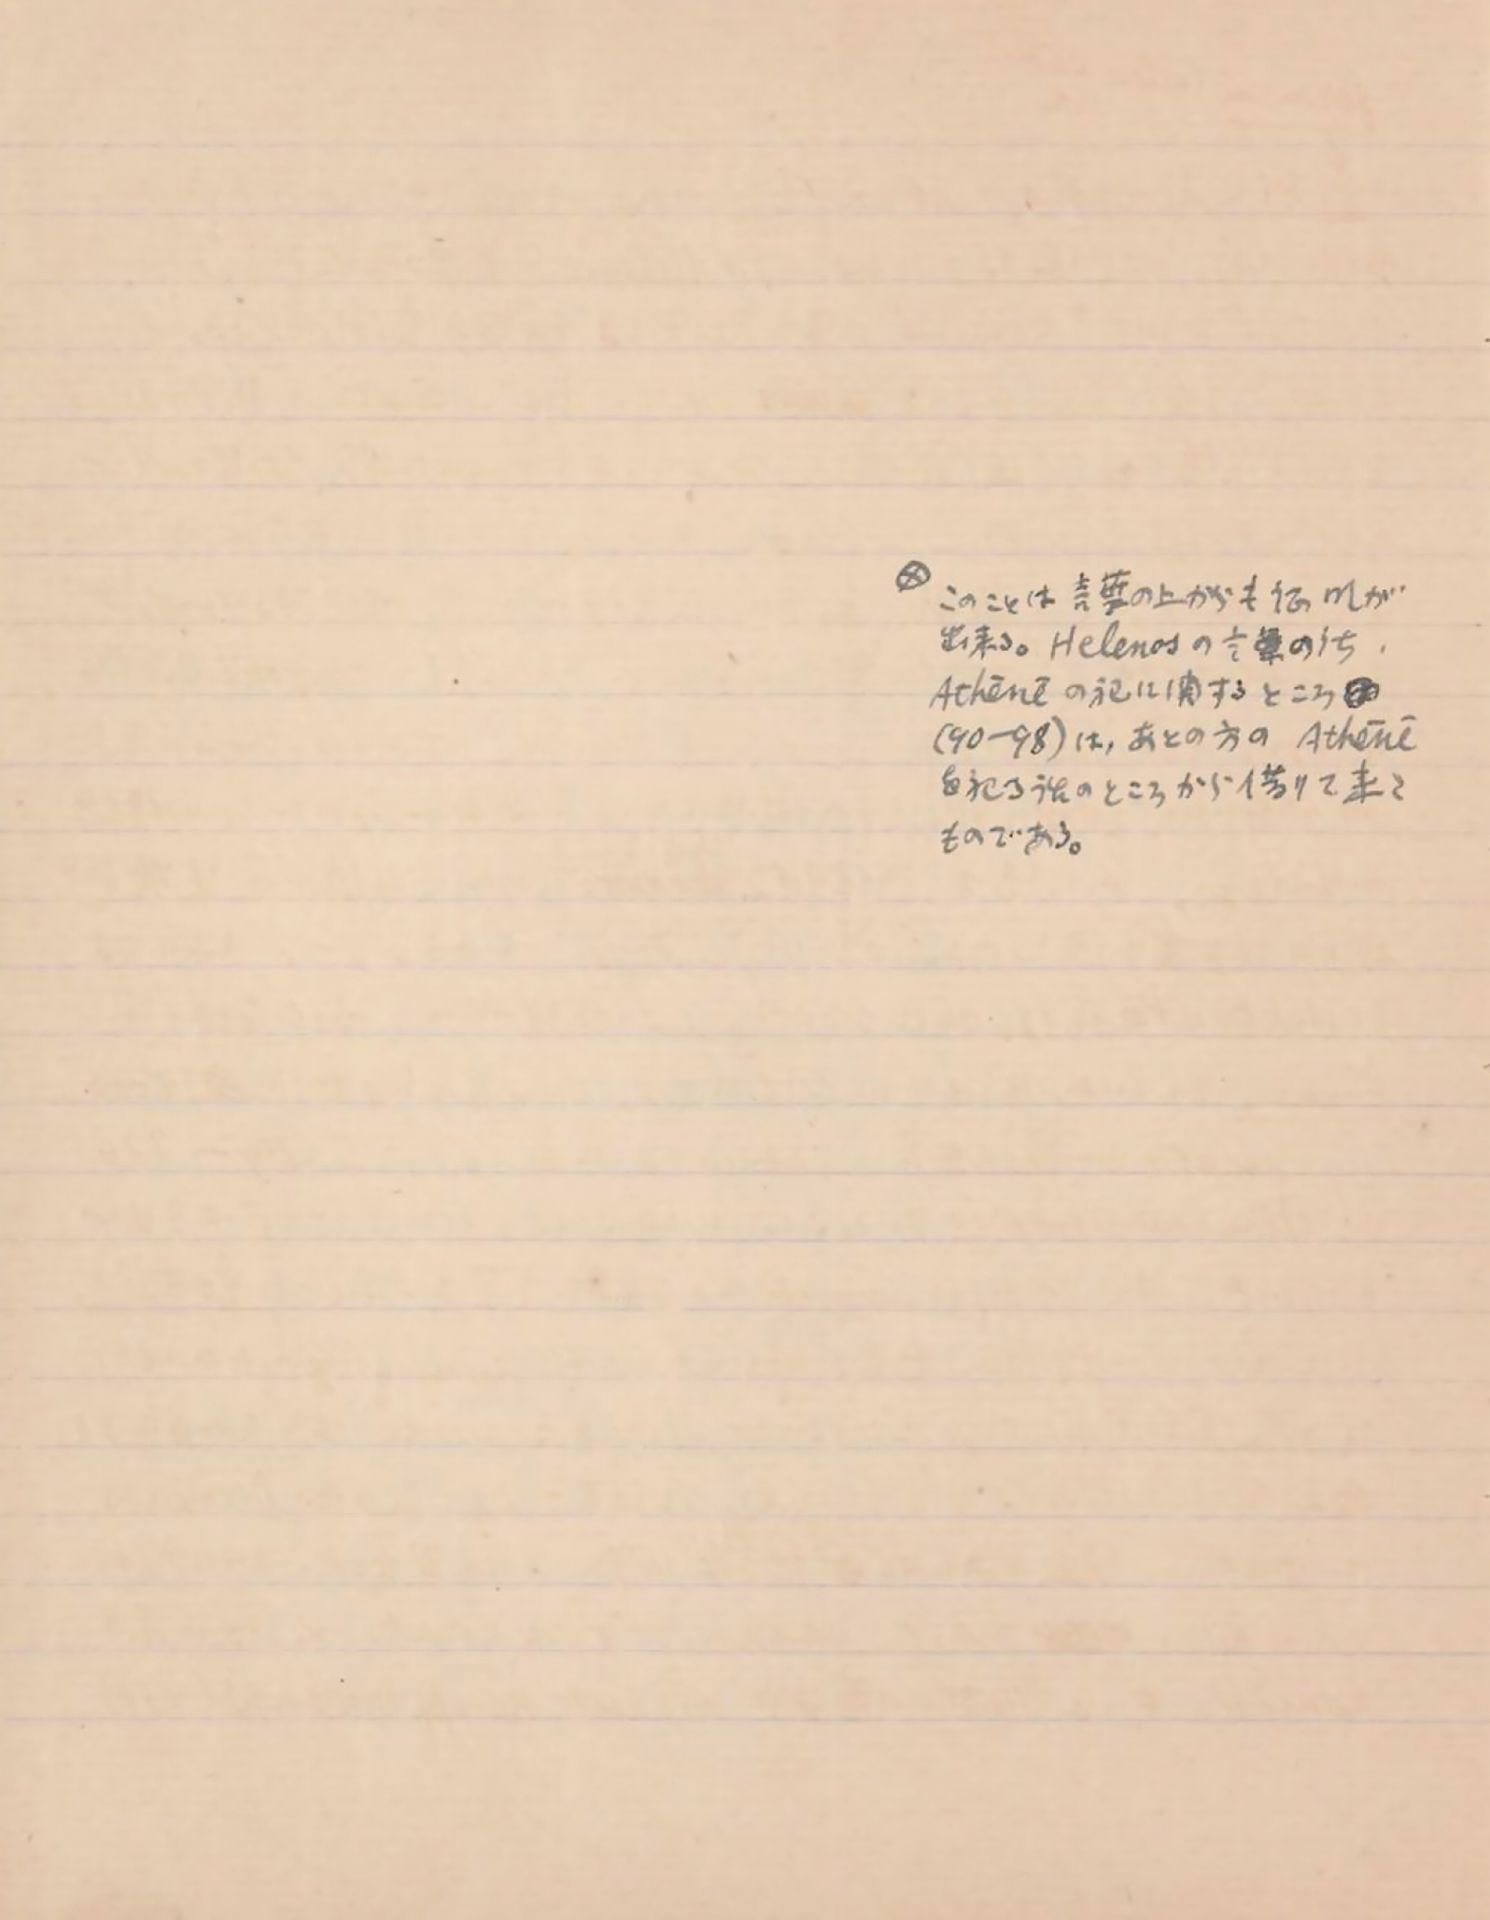 ⊗ このことは言葉の上からも証明が
出来る。Helenosの言葉のうち、
Athēnēの祀に関するところ
(90—98)は,あとの方の Athēnē
を祀る話のところから借りて来た
ものである。